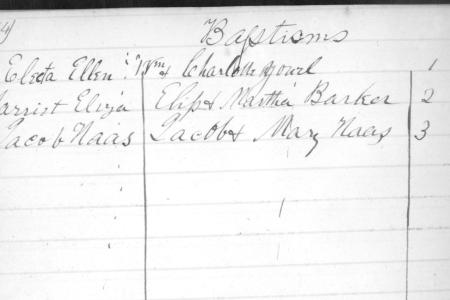 Baptisms
Electa Ellen Wm & Charlotte 1
Harriet Eliza Elip & Martha Barker 2
Jacob Naas Jacob & Mary Naas 3